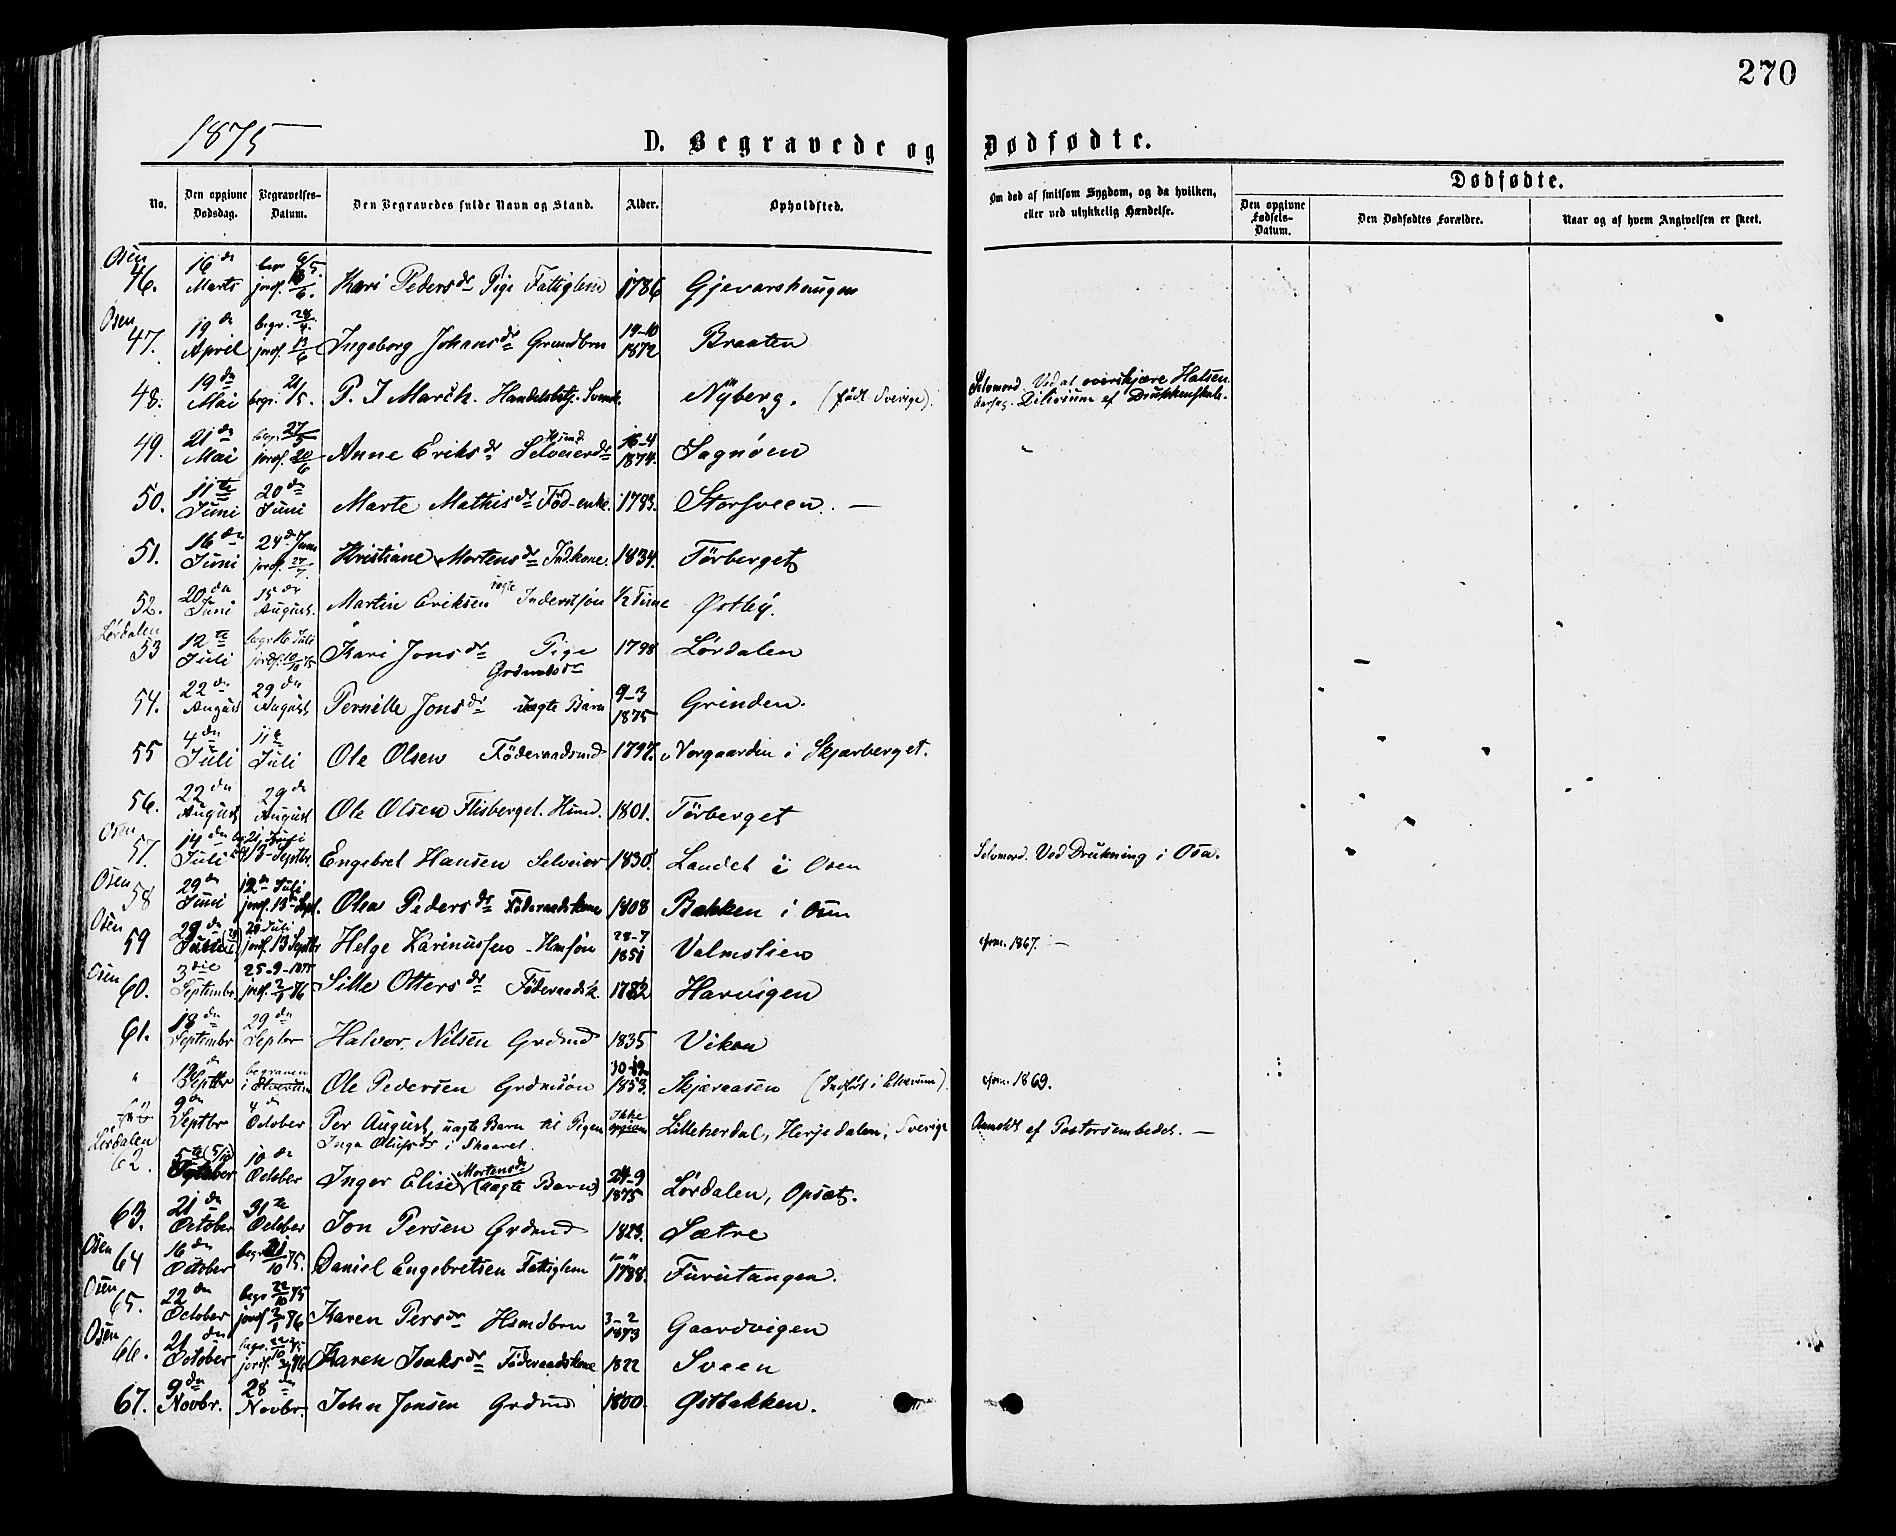 270
1875
D. Begravede og Dødfødte.
No. Den opgivne Dødsdag. Begravelses-Datum. Den Begravedes fulde Navn og Stand. Alder. Opholdsted. Om død af smitsom Sygdom, og da hvilken, eller ved ulykkelig Hændelse. Dødfødte.
Den opgivne Fødsels-Datum. Den Dødfødtes Forældre. Naar og af hvem Angivelsen er skeet.
Osen 46. 16de Marts begr. 6/5. jordf. Kari Pedersdr Pige Fattiglem 1786 Gjevarshaugen
Osen 47. 19de April begr. 28/4. jordf. 13/6 Ingeborg Johansdr 19-10 1872 Braaten
48. 19de Mai begr. 21/5. P. J March. Handelsbetj. Svensk. Nyberg. (født Sverige). Selvmord. Ved at overskjære Halsen. Aarsag. Delirium af Drukkenskab.
49. 21de Mai begr. 27/5 jordf. 20/6 Anne Eriksdr Selveierdr 16-4 1874. Sagnøen
50. 11te Juni 20de Juni Marte Mathisdr Fød-enke. 1783. Storsveen. —
51. 16de Juni 24de Juni jordf. Kristiane Mortensdr Indkone. 1834. Törberget
52. 20de Juni 15de August. Martin Eriksen uægte Inderstsøn 1/2 Time Østby.
Lørdalen 53 12te Juli begr 16 Juli jordf. 10/10 75 Kari Jonsdr Pige 1798 Lørdalen
54. 22de August 29de August Pernille Jonsdr Grdmdsdr uægte Barn 9-3 1875 Grinden.
55 4de Juli 11te Juli Ole Olsen Föderaadsmd 1797. Vorgaarden i Skjærberget.
56. 22de August 29de August Ole Olsen Flisberget. Husmd. 1801. Törberget
Osen 57. 14de Juli 21 Juli 13 Septbr. Engebret Hansen Selveier 1830. Landet i Osen Selvmord. Ved Drukning i Osa.
Osen 58 29de Juni 12te Juli jordf. 13 Sept. Olea Pedersdr Föderaadskone 1808 Bakken i Osen
Osen 59 28de Juli jordf. 13 Septbr Helge Karinussen Hmsøn 28-7 1851 Valmslien cfrm. 1867. —
Osen 60. 3die Septembr 25-9-1875 jordf. 2/1 76 Sille Ottersdr Föderaadsk. 1782 Harvigen
61. 18de Septembr 29de Septbr Halvor Nilsen Grdmd 1835 Viken
" Septbr begraven i Elverum Ole Pedersen Grdmsön 1853. Skjæraasen (Indført i Elverum) cfrm. 1869.
9de Septbr 4de October Per August, uægte Barn til Pigen Inga Olufsdr i Skaaret Ikke opgiven Lilleherdal, Herjedalen, Sverige Anmeldt af Pastorsembedet. —
Lørdalen 62. 5te (5/10) October 10de October Inger Elise Mortensdr (uægte Barn) 24-9 1875 Lørdalen, Opsæt.
63. 21de October 31te October Jon Persen Grdmd 1823. Sætre
Osen 64 16de October begr. 21/10 75. Daniel Engebretsen Fattiglem 1788. Furutangen.
Osen 65. 22de October begr 22/10 75 jordf 2/1 76 Karen Persdr Husmdbrn 3-2 1873 Gaardvigen
Osen 66. 21de October begr. jordf. Karen Isaksdr Föderaadskone 1822 Sveen
67. 9de Novbr. 28de Novbr. John Jonsen Grdmd 1800. Østbakken.